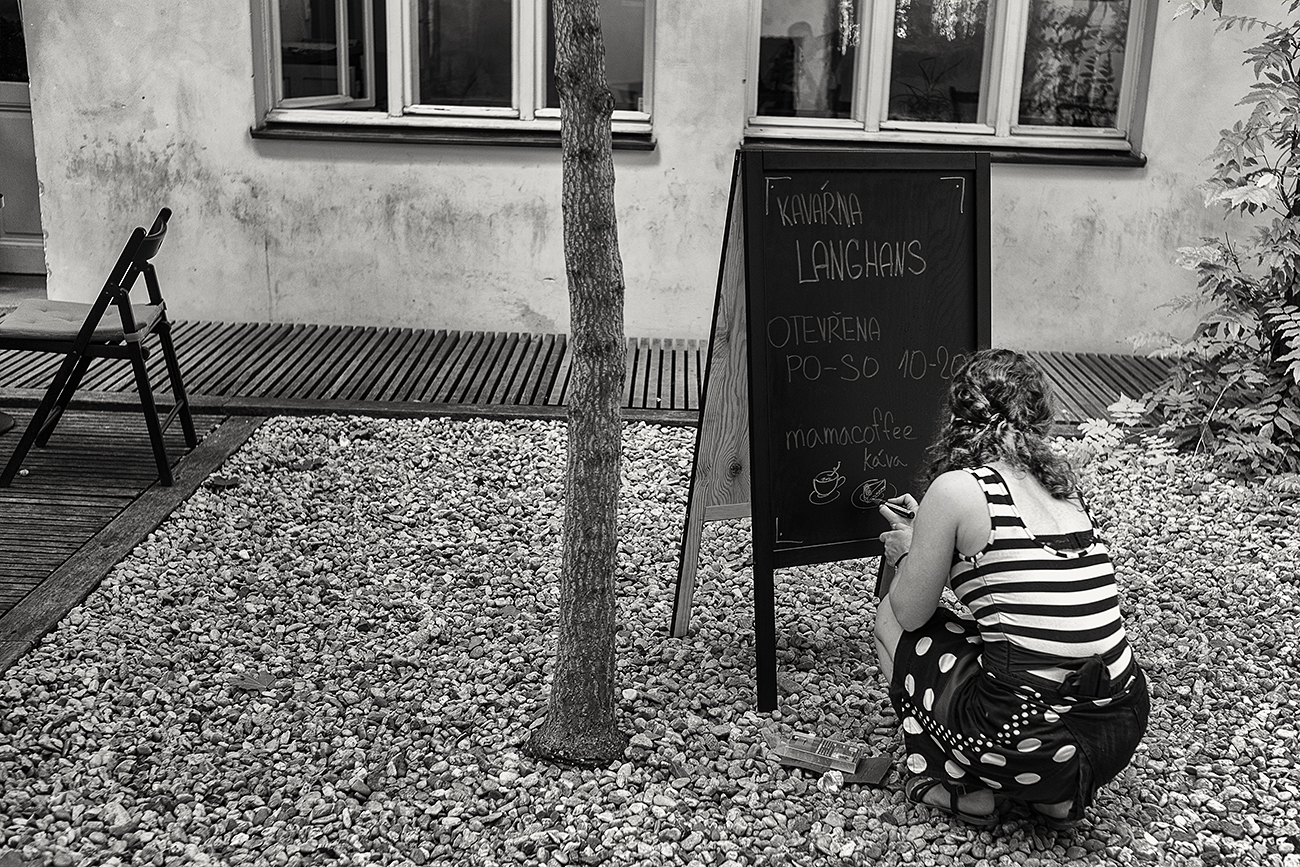 KAVÁRNA
LANGHANS
OTEVŘENA
PO-SO 10-20
mamacoffee
káva